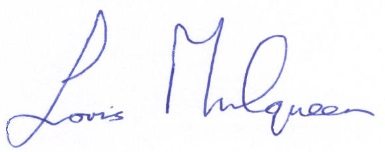 Louis Mulqueen